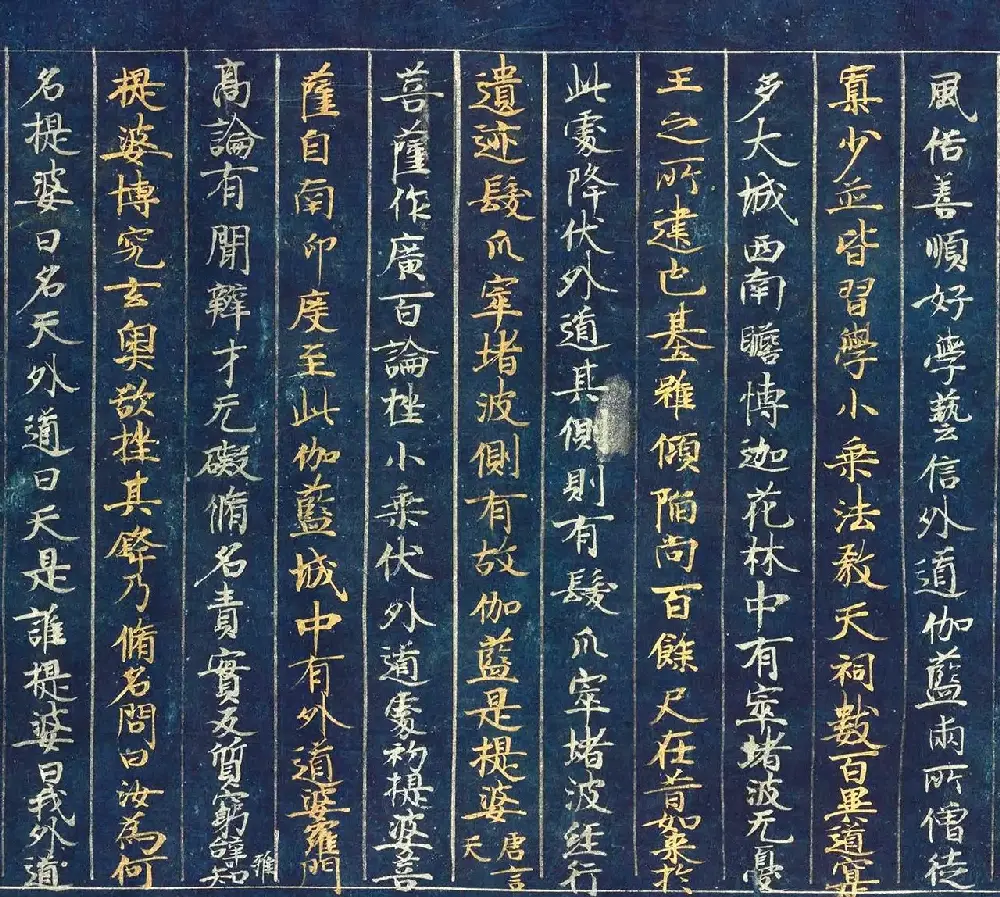 風俗善順好學藝信外道伽藍兩所僧徒
寡少並皆習學小乘法教天祠數百異道寔
多大城西南瞻博迦花林中有窣堵波无憂
王之所建也基雖傾陷尚百餘尺在昔如來於
此處降伏外道其側則有髮爪窣堵波經行
遺迹髮爪窣堵波側有故伽藍是提婆唐言天
菩薩作廣百論挫小乘伏外道處初提婆菩
薩自南印度至此伽藍城中有外道婆羅門
高論有聞辯才无礙脩名責實反質窮辭雅知
提婆博究玄奧欲挫其鋒乃脩名問曰汝為何
名提婆曰名天外道曰天是誰提婆曰我外道